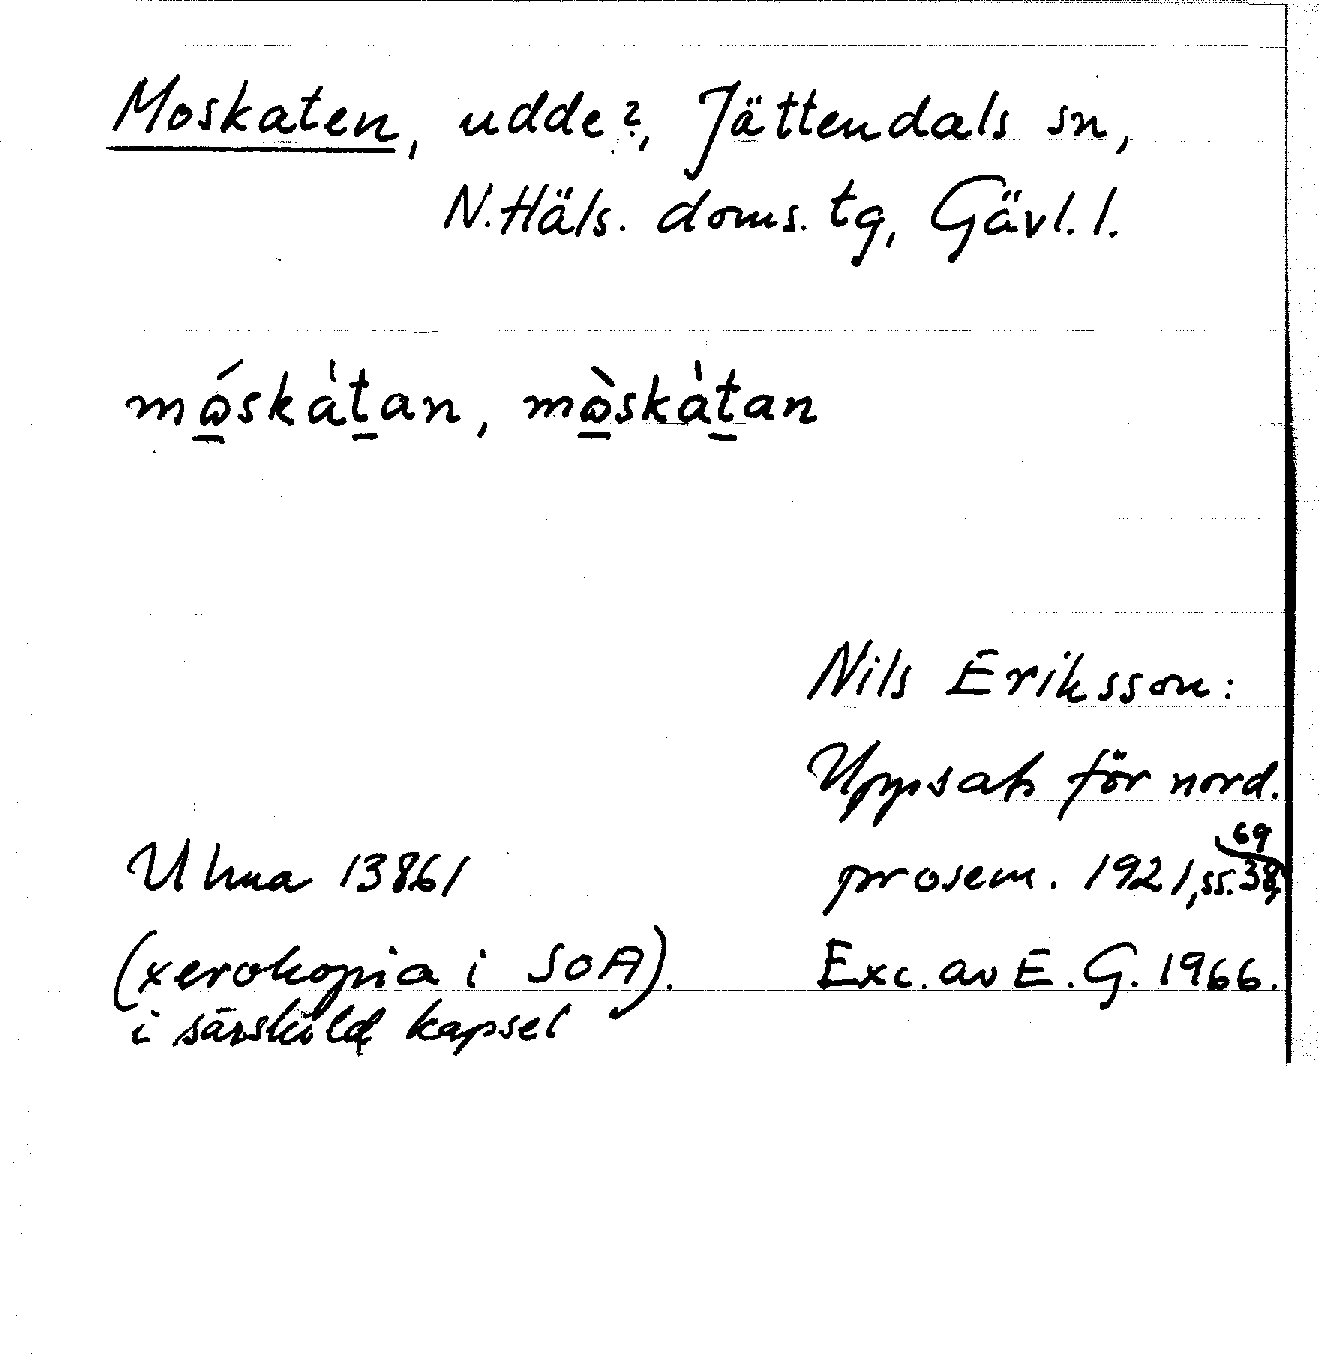 Moskaten, udde?, Jättendals sn,
N. Häls. doms. tg, Gävl. l.
mó̱skàṯan, mò̱skàṯan
Nils Eriksson:
Uppsats för nord.
prosem. 1921, ss. 38, 69
Uhna 13861
(xerokopia i SOA).
i särskild kapsel
Exc. av E. G. 1966.